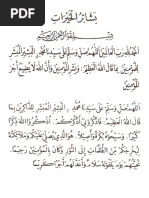 بشائر الخيرات
بسم الله الرحمن الرحيم
الحمد لله رب العالمين اللهم صل وسلم على سيدنا محمد البشير المبشر
للمؤمنين بما قال الله العظيم وبشر المؤمنين وأن الله لا يضيع أجر
المؤمنين
اللهم صل وسلم على سيدنا محمد البشير المبشر للذاكرين بما
قال الله العظيم فاذكروني أذكركم أذكروا الله ذكرا
كثيرا وسبحوه بكرة وأصيلا هو الذي يصلي عليكم وملائكته
ليخرجكم من الظلمات إلى النور وكان بالمؤمنين رحيما
تحيتهم يوم يلقونه سلام وأعد لهم أجرا كريما